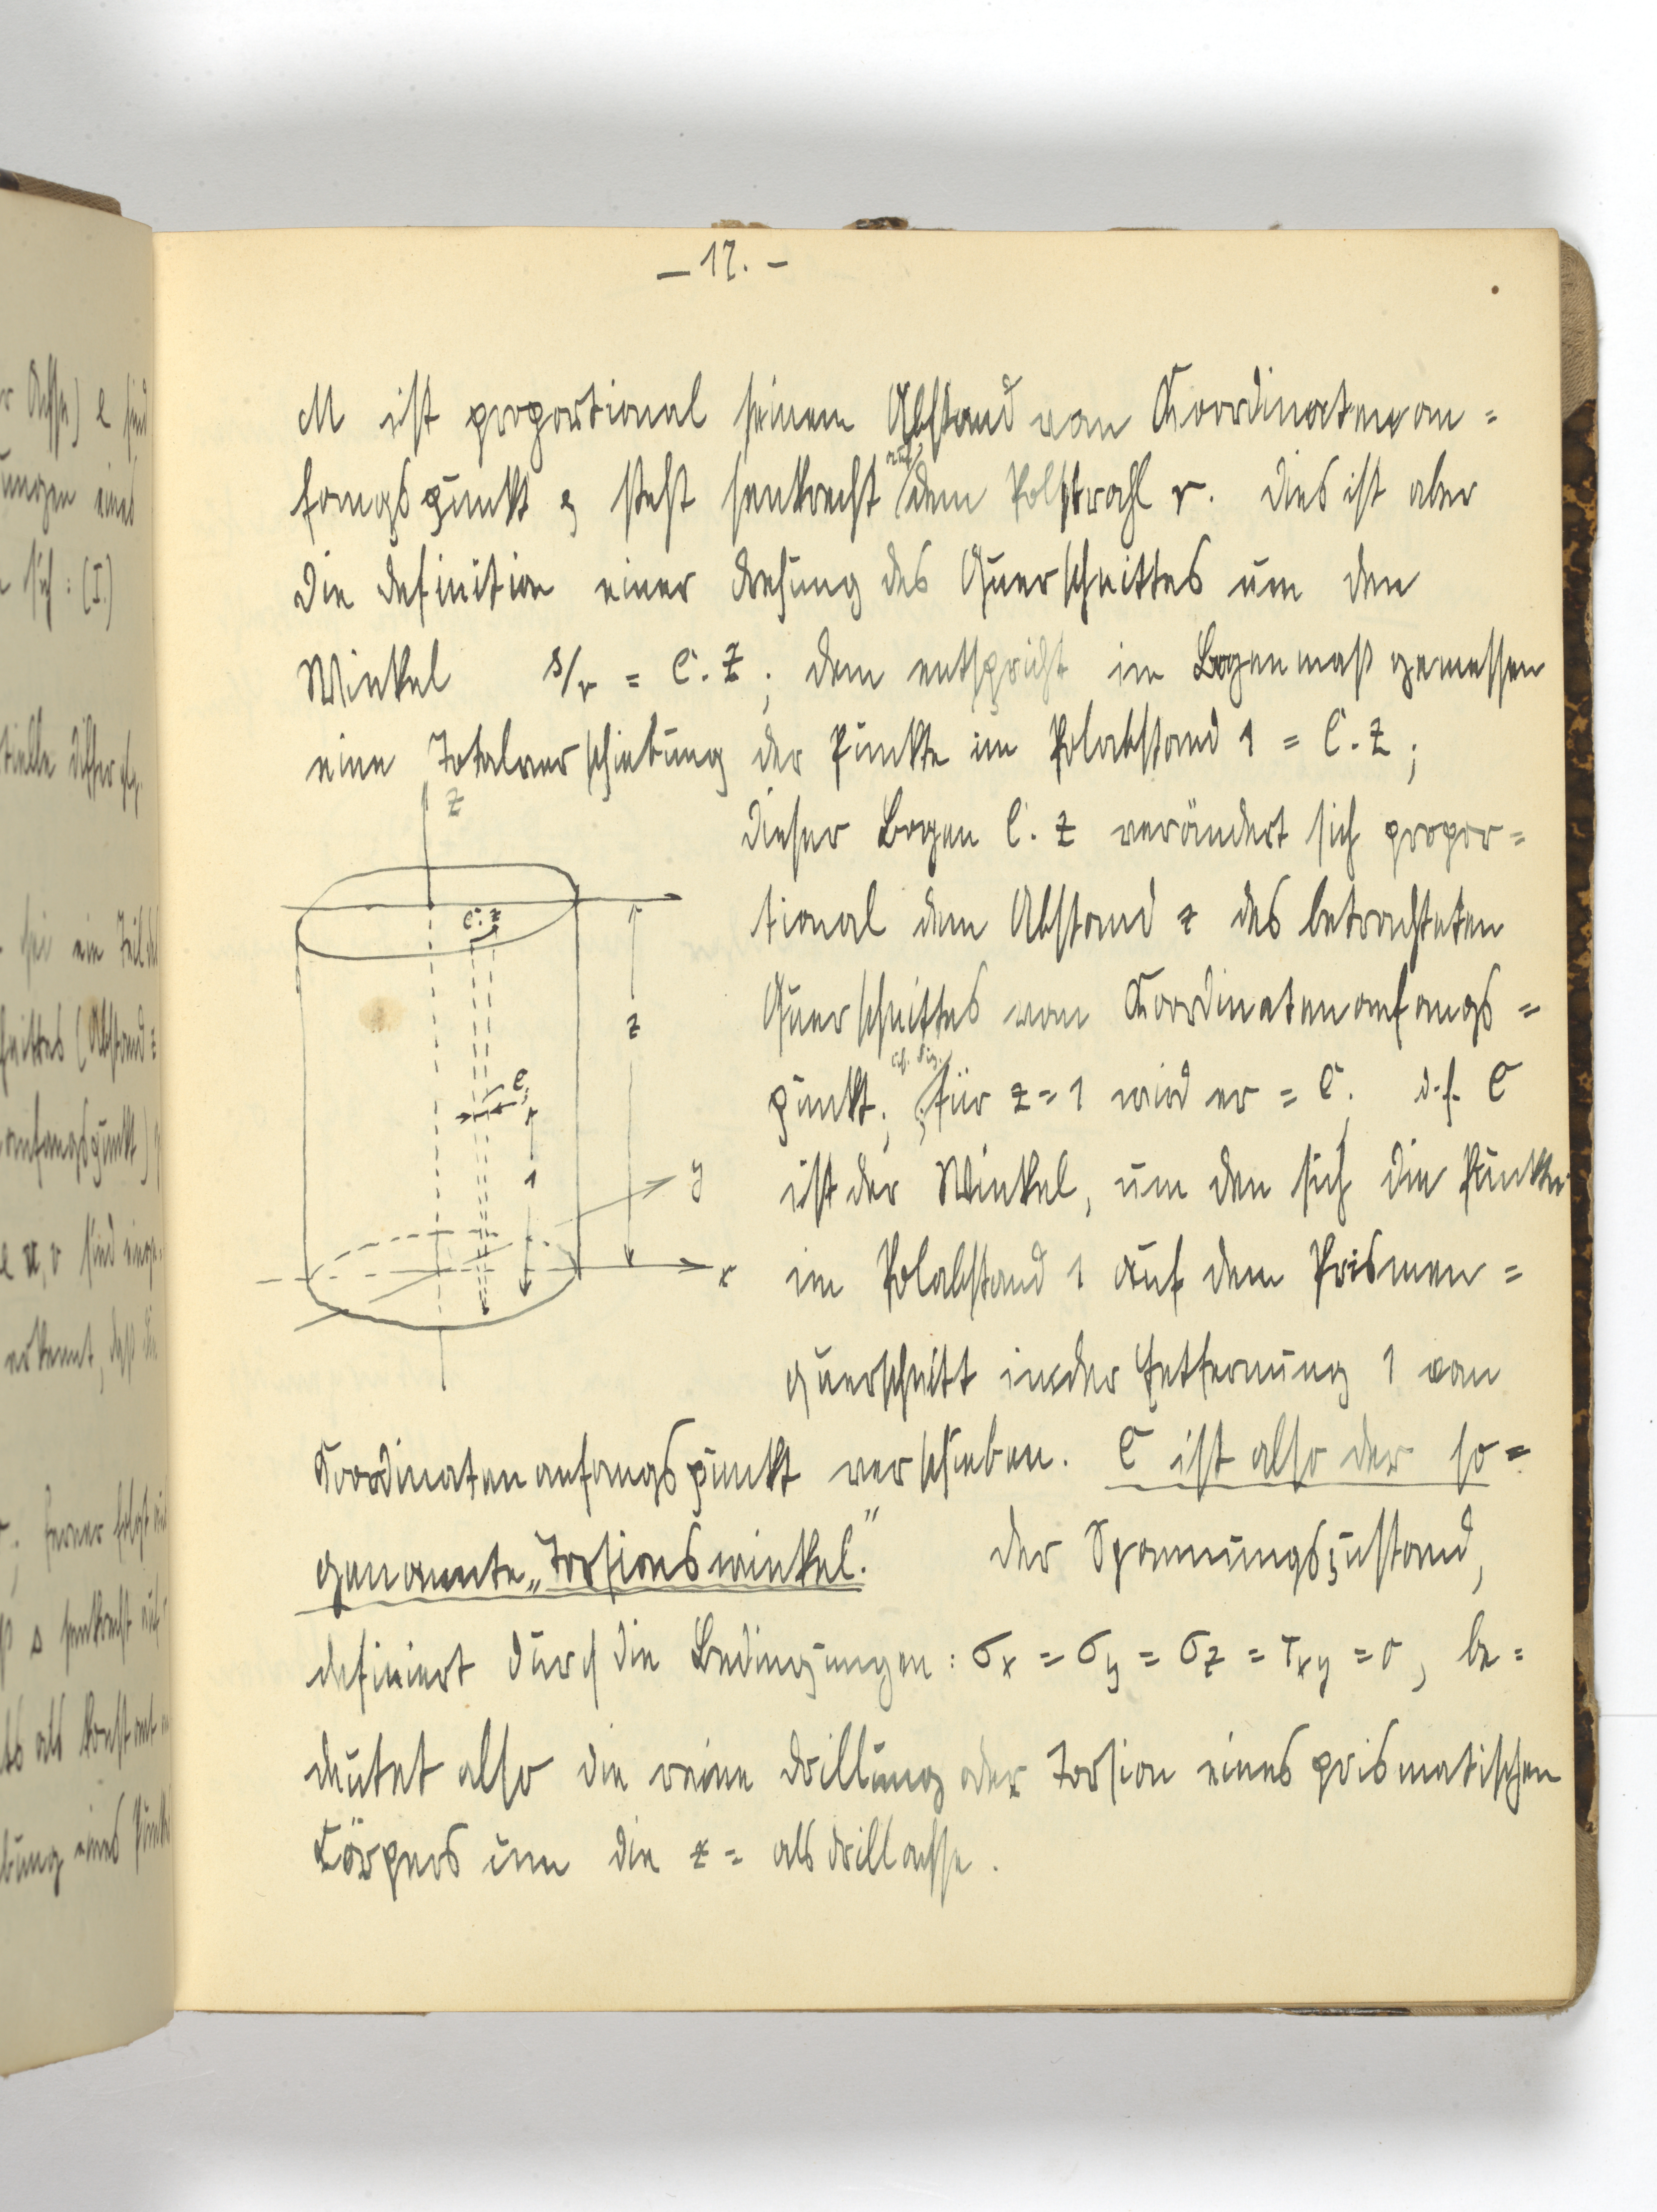 – 17. –
M ist proportional seinem Abstand vom Koordinatenan=
fangspunkt & steht senkrecht auf dem Polstrahl r. Dies ist aber
die Definition einer Drehung des Querschnittes um den
Winkel s/r = C. z; dem entspricht im Bogenmaß gemessen
eine Totalverschiebung der Punkte im Polabstand 1 = C. z;
z
dieser Bogen C. z verändert sich propor=
tional dem Abstand z des betrachteten
C. z
Querschnittes vom Koordinatenanfangs=
z
cf. Fig.
punkt; für z=1 wird er = C. d.h. C
C
ist der Winkel, um den sich die Punkte
1
y
im Polabstand 1 auf dem Prismen=
x
querschnitt in der Entfernung 1 vom
Koordinatenanfangspunkt verschieben. C ist also der so=
genannte „Torsionswinkel." Der Spannungszustand,
definiert durch die Bedingungen: σx = σy = σz = τxy = 0, be=
deutet also die reine Drillung oder Torsion eines prismatischen
Körpers um die z= als Drillachse.